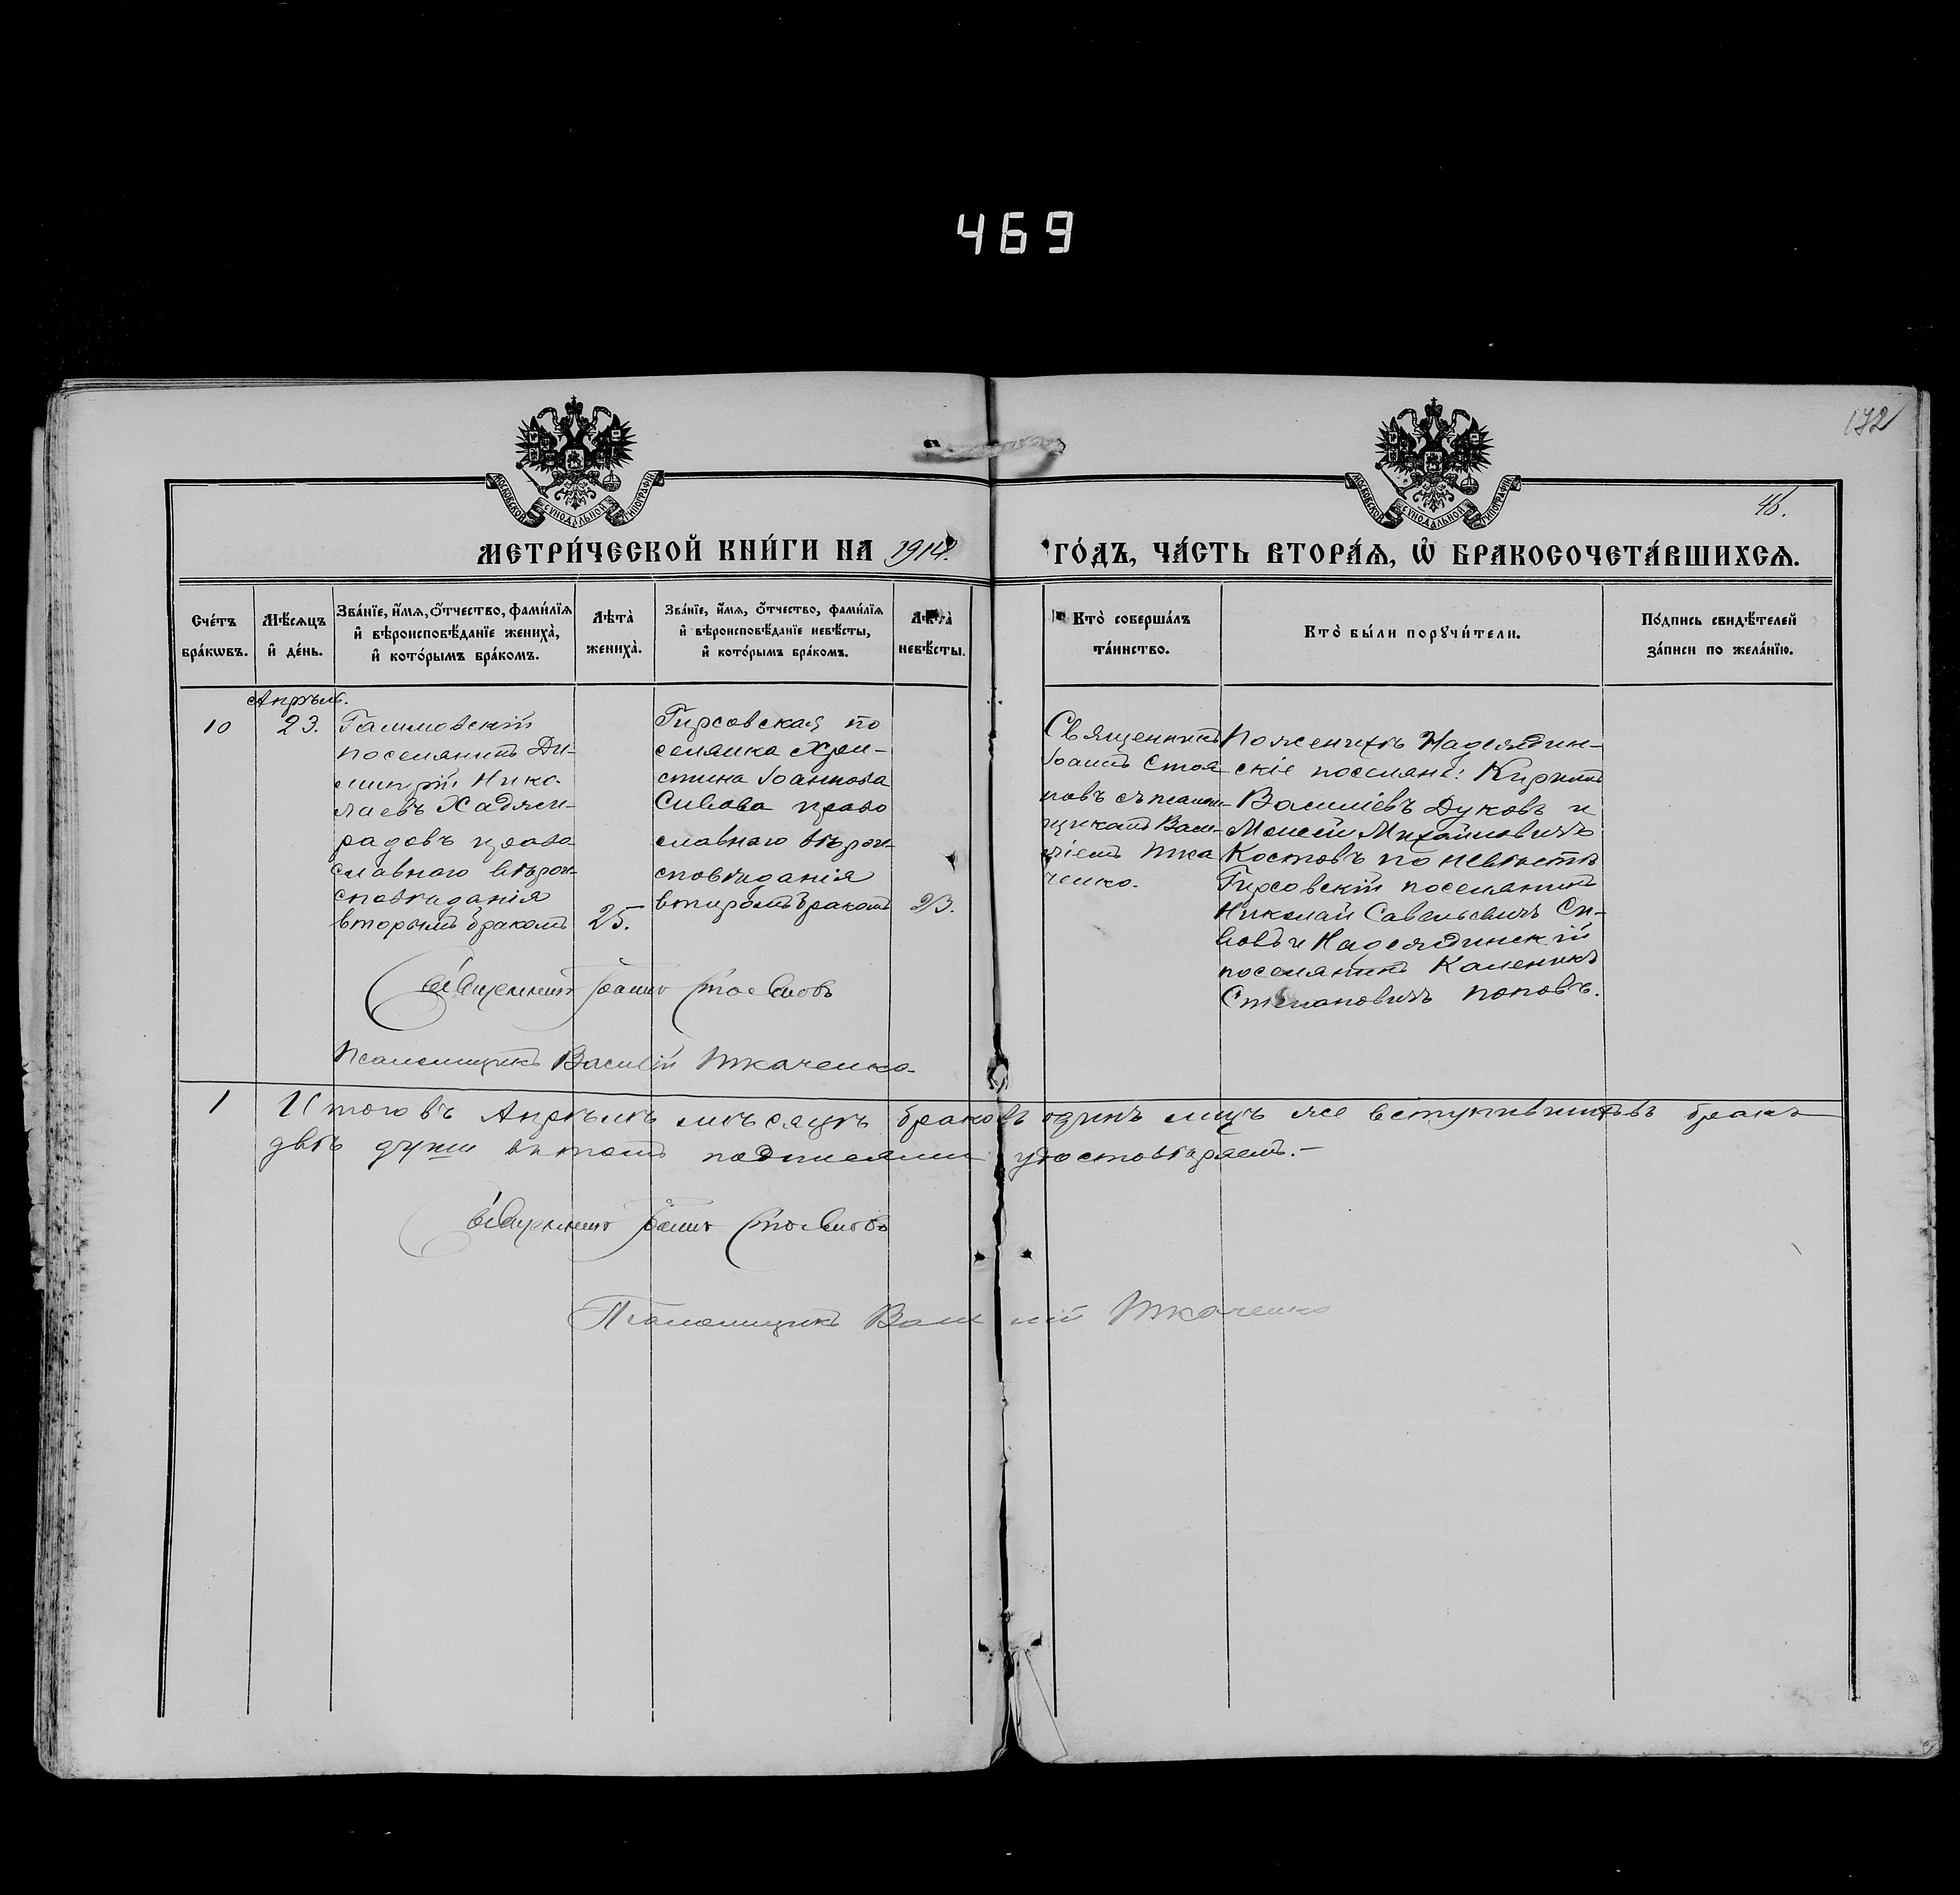 469
172
46.
МОСКОВСКОЙ СУНОДАЛЬНОЙ ТИПОГРАФІИ
МОСКОВСКОЙ СУНОДАЛЬНОЙ ТИПОГРАФІИ
МЕТРИ́ЧЕСКОЙ КНИ́ГИ НА 1914 ГО́ДЪ, ЧА́СТЬ ВТОРА́Ѧ, Ѡ҆ БРАКОСОЧЕТА́ВШИХСѦ.
Сче́тъ бра́кѡвъ.
Мѣ́сѧцъ и҆ де́нь.
Зва́нїе, и҆́мѧ, ѻ҆́тчество, фами́лїѧ и҆ вѣроисповѣ́данїе жениха̀, и҆ кото́рымъ бра́комъ.
Лѣта̀ жениха̀.
Зва́нїе, и҆́мѧ, ѻ҆́тчество, фами́лїѧ и҆ вѣроисповѣ́данїе невѣ́сты, и҆ кото́рымъ бра́комъ.
Лѣта̀ невѣ́сты.
Кто̀ соверша́лъ та́инство.
Кто̀ бы́ли порꙋчи́тели.
По́дпись свидѣ́телей за́писи по жела́нїю.
Апрѣль.
10
23.
поселянинъ Ди-
митрій Нико-
лаевъ Хаджи-
радовъ право
славнаго вѣрои-
сповѣданія
вторымъ бракомъ
25.
Гирсовская по
селянка Хри-
стина Іоаннова
Сивова право
славнаго вѣрои-
сповѣданія
вторымъ бракомъ
23.
Священникъ
Іоаннъ Стоя
новъ съ псалом-
щикомъ Васи-
ліемъ Тка
ченко.
По женихѣ Надеждин-
скіе поселяне: Кириллъ
Василіевъ Дуковъ и
Моисей Михайловичъ
Костовъ по невѣстѣ
Гирсовскій поселянинъ
Николай Савельевичъ Си-
вовъ и Надеждинскій
поселянинъ Каленикъ
Степановичъ Поповъ.
Священникъ Іоаннъ Стояновъ
Псаломщикъ Василій Ткаченко.
1
Итого въ Апрѣлѣ мѣсяцѣ браковъ одинъ лицъ же вступившихъ въ бракъ
двѣ души въ томъ подписями удостовѣряемъ.—
Священникъ Іоаннъ Стояновъ
Псаломщикъ Василій Ткаченко